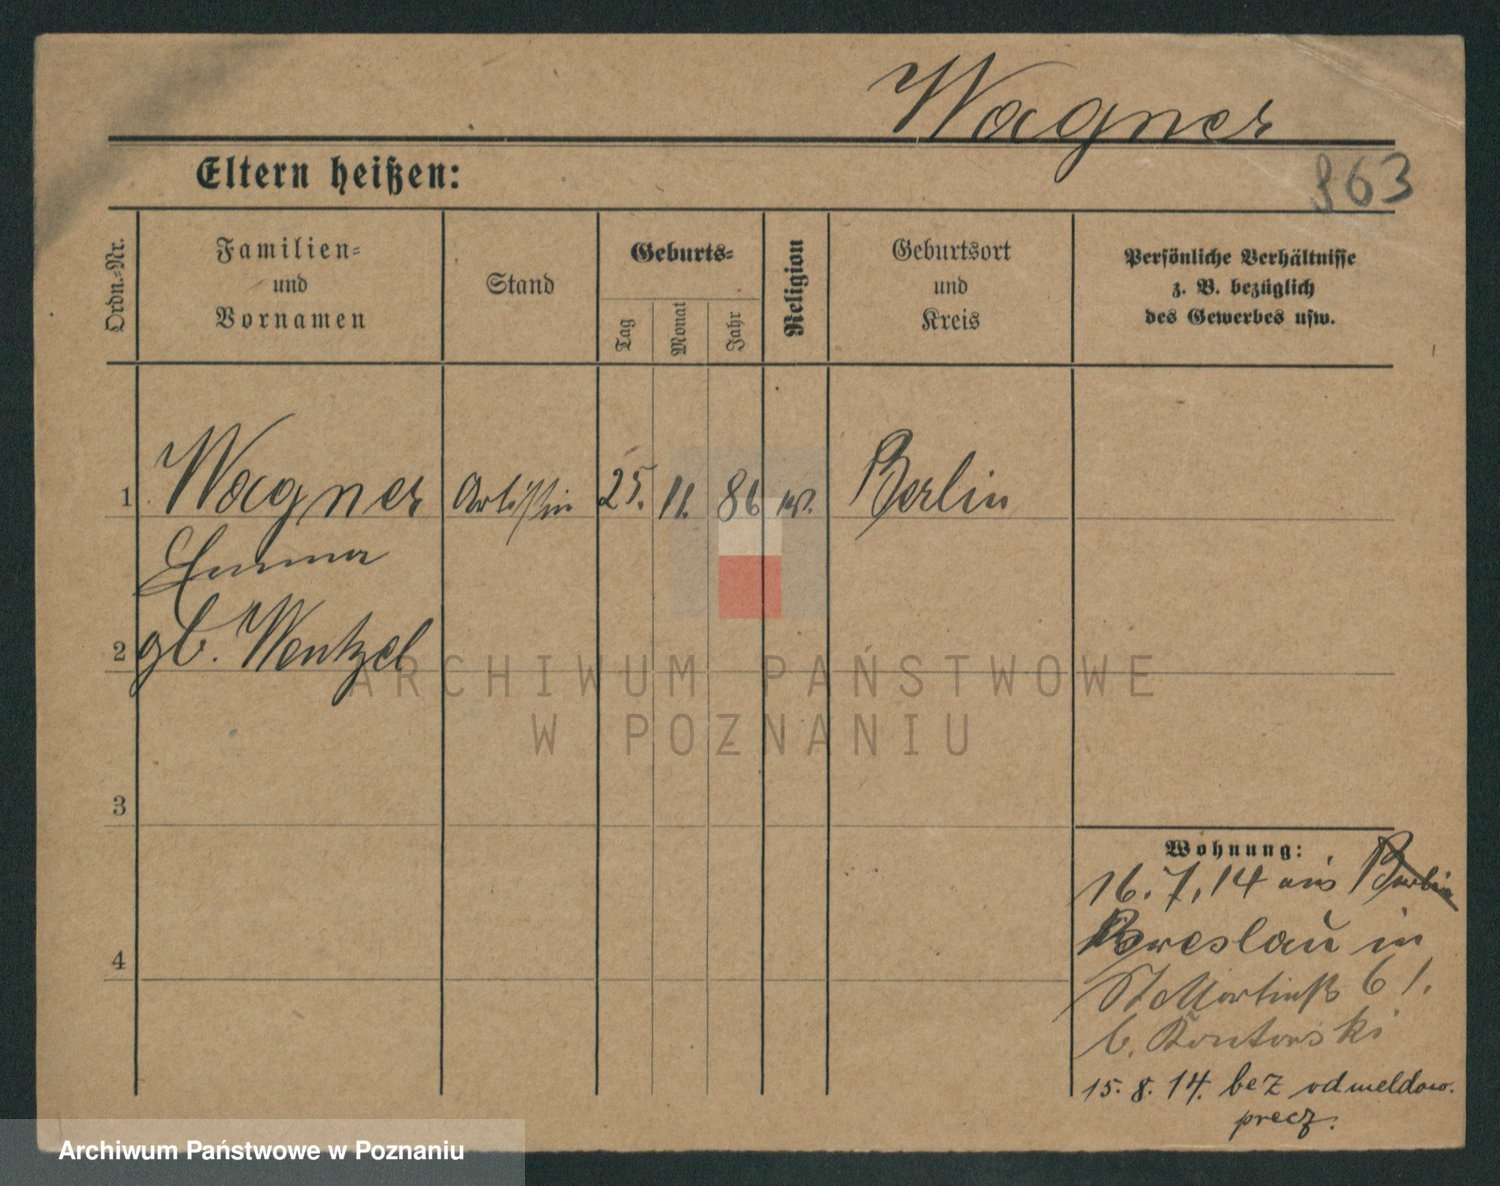 Wagner
863
Eltern heißen:
Ordn.-Nr.
Familien-
und
Vornamen
Stand
Geburts-
Tag
Monat
Jahr
Religion
Geburtsort
und
Kreis
Persönliche Verhältnisse
z. B. bezüglich
des Gewerbes usw.
1 Wagner Artistin 25. 11. 86 Berlin
Emma
2 gb. Wentzel
ARCHIWUM PAŃSTWOWE
W POZNANIU
3
4
Wohnung:
16.7.14 aus Berlin
Breslau in
St Martinstr 61.
b. Kontorski
15.8.14. bez odmeldow.
precz.
Archiwum Państwowe w Poznaniu